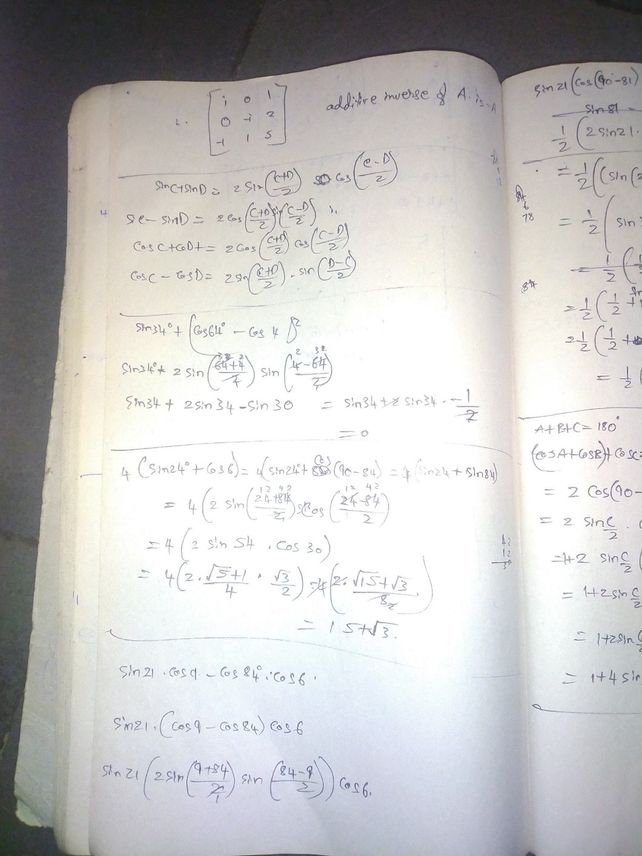 2. [ i 0 1
0 -i 2
-1 1 5 ] additive inverse of A is -A
sinC+sinD = 2 sin((C+D)/2) cos((C-D)/2)
- sinD = 2cos((C+D)/2) ((C-D)/2)
cosC+coD+ = 2cos((C+D)/2) cos((C-D)/2)
cosC - cosD = 2sin((C+D)/2) . sin((D-C)/2)
sin34° + {cos64° - cos4
sin34° + 2 sin((64+4)/2) sin((4-64)/2)
sin34 + 2sin34 -sin30 = sin34 + 2 sin34 . -1/2
= 0
4 (sin24° + cos6) = 4(sin24° + cos(90-84) = 4(sin24 + sin84)
= 4 (2 sin((24+84)/2) cos((24-84)/2)
= 4 (2 sin 54 . cos 30)
= 4 (2 . (√5+1)/4 . √3/2) = 4(2. (√15+√3)/8)
= 15+√3.
sin21 . cos9 - cos84° . cos6 .
sin21. (cos9 - cos84) cos6
sin21 (2sin((9+84)/2) sin((84-9)/2)) cos6.
sin21 (cos(90-81)
sin81
1/2 (2sin21.
= 1/2 ((sin(2
= 1/2 (sin
= 1/2 (
= 1/2 (1/2 +
= 1/2 (1/2 +
= 1/2 (
A+B+C = 180°
(cosA+cosB)+cosC=
= 2 cos(90-
= 2 sin C/2 .
= 1+2 sin C/2 (
= 1+2sin C/2
= 1+2sin C/2
= 1+4 sin